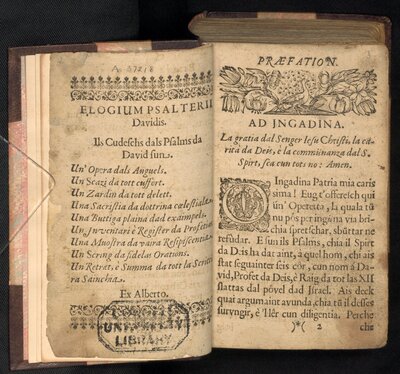 A 5218
ELOGIUM PSALTERII
Davidis.
Ils Cudeschs dals Psalms da
David sun.
Un' Opera dals Anguels.
Un Scazi da tott cuffort.
Un Zardin da tott delett.
Una Sacristia da doctrina cœlestiala
Una Butigia plaina dad exaimpels.
Un Juventari è Register da
Una Muostra da vaira
Un Scring da fidelas Orations.
Un Retrat, è Summa da tott la
ra Saincha.
Ex Alberto.
UNIVERSITY
LIBRARY
PRÆFATION.
AD INGADINA.
La gratia dal Senger Iesu Christi, la ca-
rità da Deis, è la commünanza dal S.
Spirt, sea cun tots no: Amen.
O Ingadina Patria mia caris
sima! Eug t'offeresch qui
ün' Operetta, la quala tü
nu pos per ingüna via bri-
chia spretschar, sbüttar ne
refüdar. E sun ils Psalms, chia il Spirt
da Deis ha dat aint, à quel hom, chi ais
stat seguainter seis cor, cun nom à Da-
vid, Profet da Deis, è Raig da tot las XII
slattas dal pövel dad Israel. Ais deck
quai argumaint avunda, chia tü il desses
survgnir, è 'ller cun diligentia. Perche
)*( 2 che